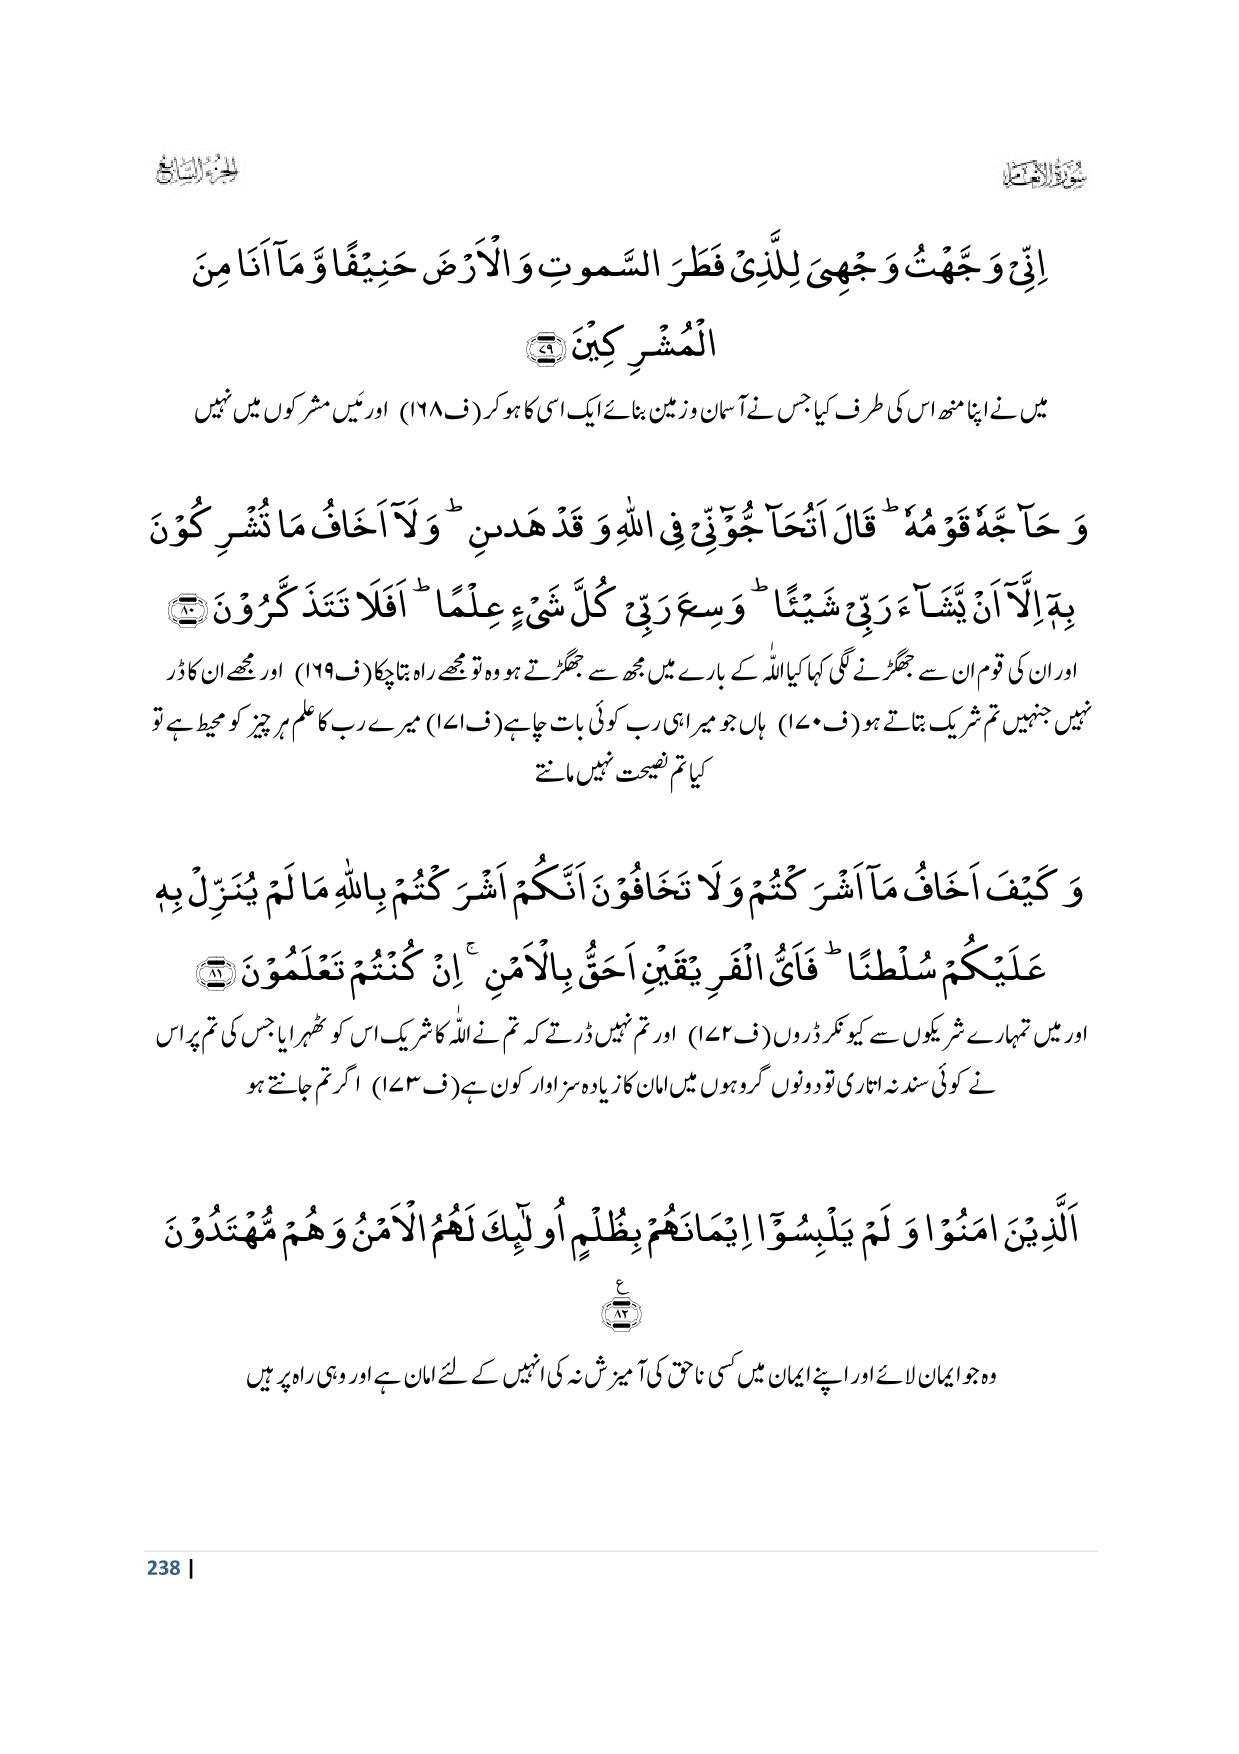 سُوْرَۃُ الْاَنْعَام
الجزء السابع
اِنِّیْ وَجَّهْتُ وَجْهِیَ لِلَّذِیْ فَطَرَ السَّمٰوٰتِ وَ الْاَرْضَ حَنِیْفًا وَّ مَاۤ اَنَا مِنَ
الْمُشْرِكِیْنَ ﴿۷۹﴾
میں نے اپنا منھ اس کی طرف کیا جس نے آسمان و زمین بنائے ایک اسی کا ہو کر (ف۱۶۸) اور مَیں مشرکوں میں نہیں
وَ حَآجَّهٗ قَوْمُهٗ ؕ قَالَ اَتُحَآجُّوْٓنِّیْ فِی اللّٰهِ وَ قَدْ هَدٰىنِ ؕ وَ لَاۤ اَخَافُ مَا تُشْرِكُوْنَ
بِهٖۤ اِلَّاۤ اَنْ یَّشَآءَ رَبِّیْ شَیْــٴًـا ؕ وَسِعَ رَبِّیْ كُلَّ شَیْءٍ عِلْمًا ؕ اَفَلَا تَتَذَكَّرُوْنَ ﴿۸۰﴾
اور ان کی قوم ان سے جھگڑنے لگی کہا کیا اللّٰہ کے بارے میں مجھ سے جھگڑتے ہو وہ تو مجھے راہ بتا چکا (ف۱۶۹) اور مجھے ان کا ڈر
نہیں جنہیں تم شریک بتاتے ہو (ف۱۷۰) ہاں جو میرا ہی رب کوئی بات چاہے (ف۱۷۱) میرے رب کا علم ہر چیز کو محیط ہے تو
کیا تم نصیحت نہیں مانتے
وَ كَیْفَ اَخَافُ مَاۤ اَشْرَكْتُمْ وَ لَا تَخَافُوْنَ اَنَّكُمْ اَشْرَكْتُمْ بِاللّٰهِ مَا لَمْ یُنَزِّلْ بِهٖ
عَلَیْكُمْ سُلْطٰنًا ؕ فَاَیُّ الْفَرِیْقَیْنِ اَحَقُّ بِالْاَمْنِ ۚ اِنْ كُنْتُمْ تَعْلَمُوْنَ ﴿۸۱﴾
اور میں تمہارے شریکوں سے کیونکر ڈروں (ف۱۷۲) اور تم نہیں ڈرتے کہ تم نے اللّٰہ کا شریک اس کو ٹھہرایا جس کی تم پر اس
نے کوئی سند نہ اتاری تو دونوں گروہوں میں امان کا زیادہ سزاوار کون ہے (ف۱۷۳) اگر تم جانتے ہو
اَلَّذِیْنَ اٰمَنُوْا وَ لَمْ یَلْبِسُوْۤا اِیْمَانَهُمْ بِظُلْمٍ اُولٰٓىٕكَ لَهُمُ الْاَمْنُ وَ هُمْ مُّهْتَدُوْنَ
﴿۸۲﴾ ع
وہ جو ایمان لائے اور اپنے ایمان میں کسی ناحق کی آمیزش نہ کی انہیں کے لئے امان ہے اور وہی راہ پر ہیں
238 |